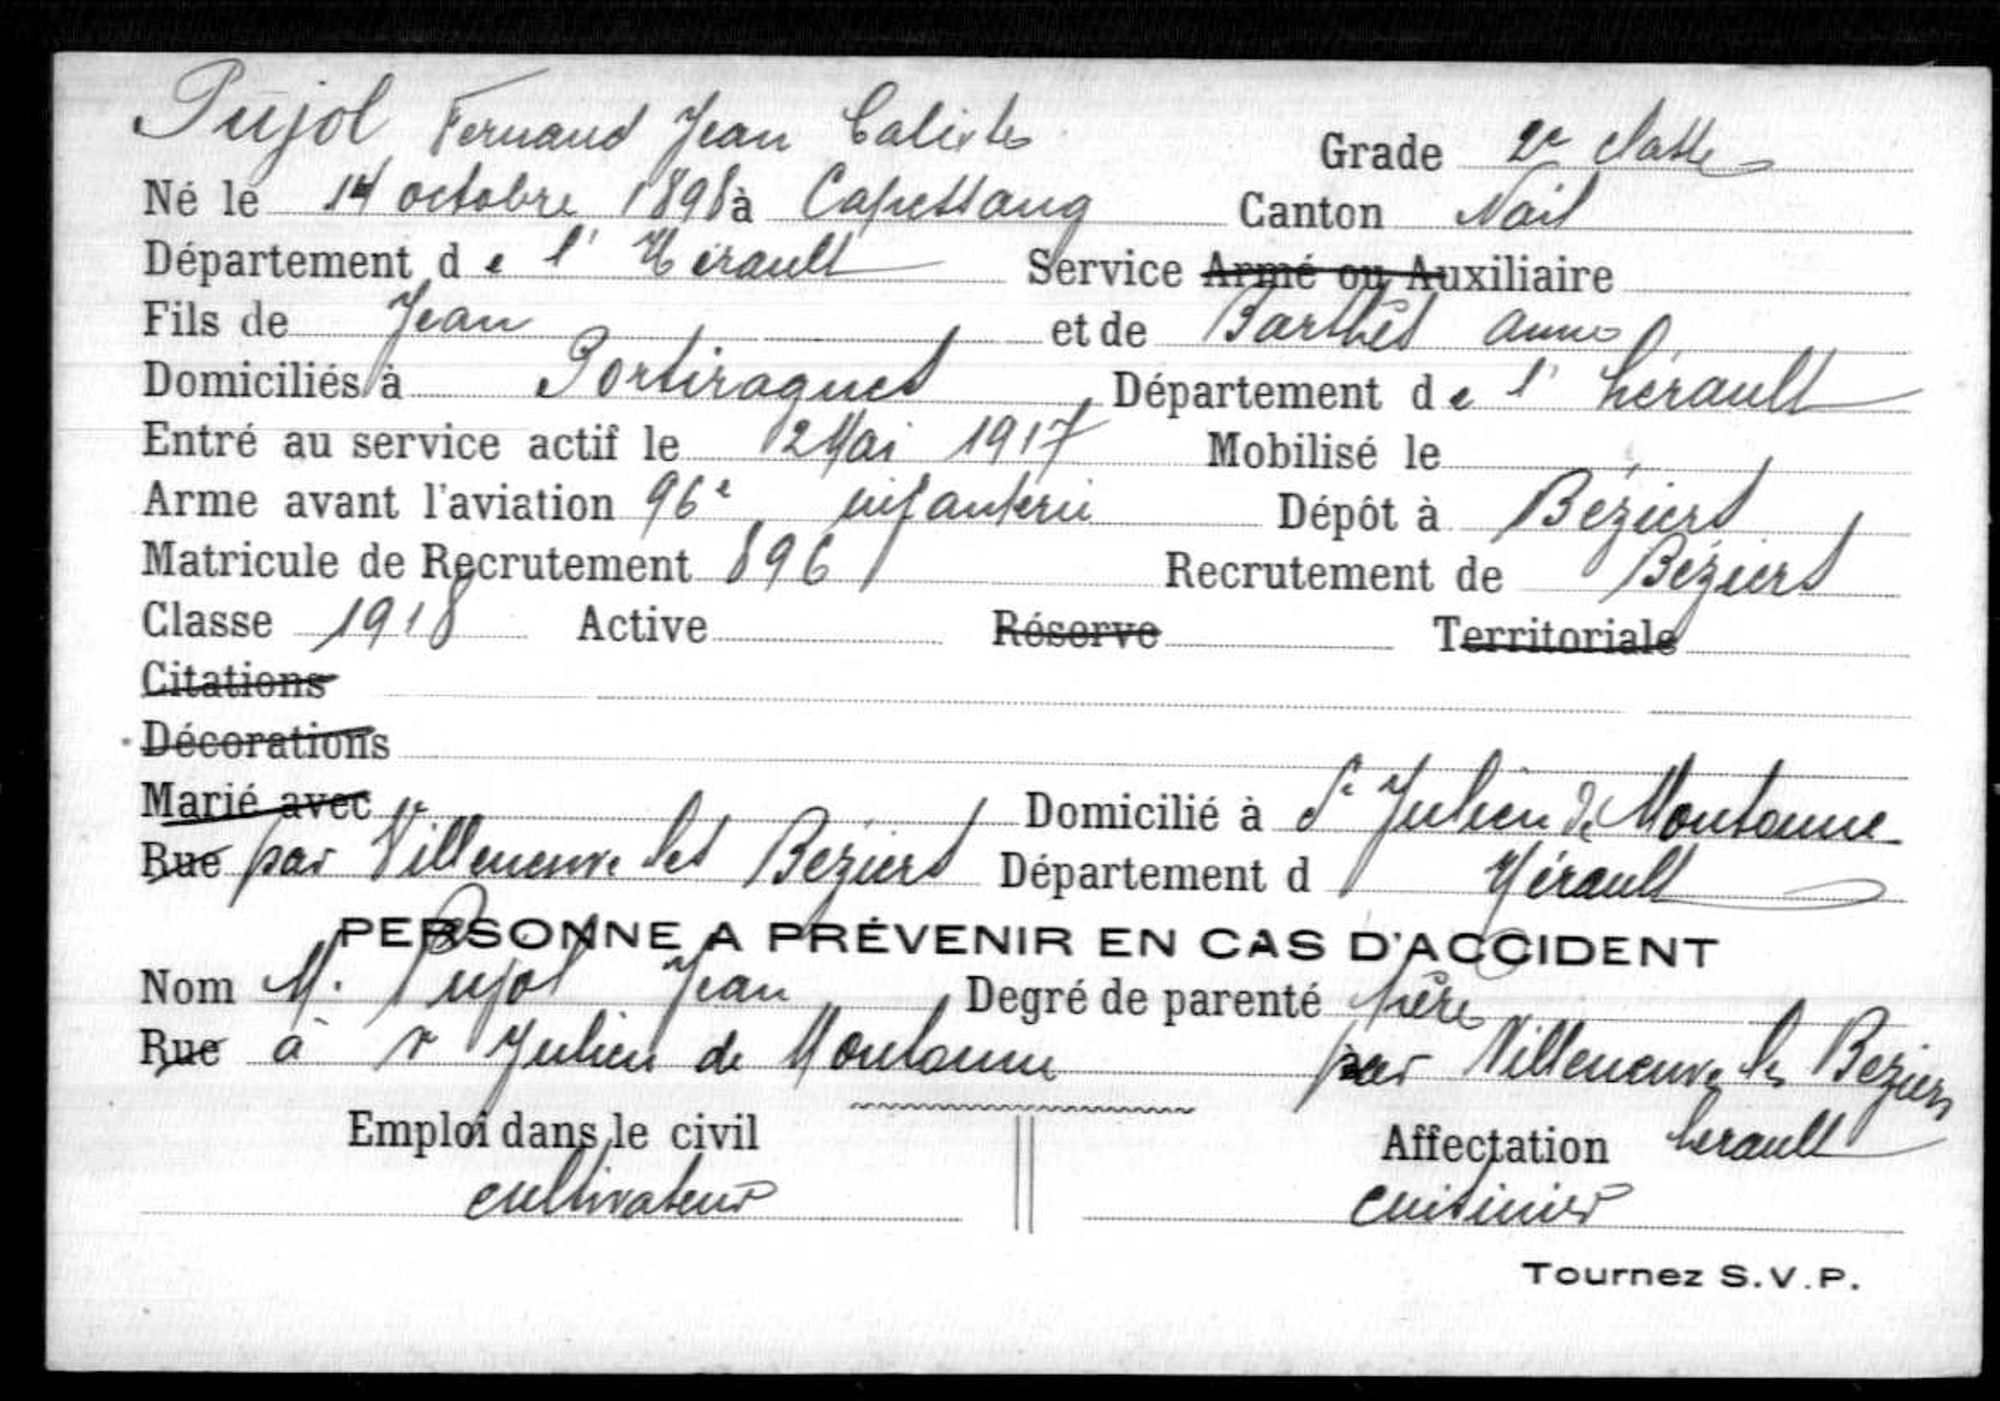 Pujol Fernand Jean Calixte Grade 2e classe
Né le 14 octobre 1898 à Capestang Canton
Département de l'Hérault Service Armé ou Auxiliaire
Fils de Jean et de Barthès Anne
Domiciliés à Portiragnes Département de l'hérault
Entré au service actif le 2 Mai 1917 Mobilisé le
Arme avant l'aviation 96e infanterie Dépôt à Béziers
Matricule de Recrutement 896 Recrutement de Béziers
Classe 1918 Active Réserve Territoriale
Citations
Décorations
Marié avec Domicilié à St Julien de Montanne
Rue par Villeneuve les Beziers Département d Hérault
PERSONNE A PRÉVENIR EN CAS D'ACCIDENT
Nom M. Pujol Jean Degré de parenté père
Rue à St Julien de Montanne par Villeneuve les Beziers
Emploi dans le civil Affectation herault
cultivateur cuisinier
Tournez S.V.P.